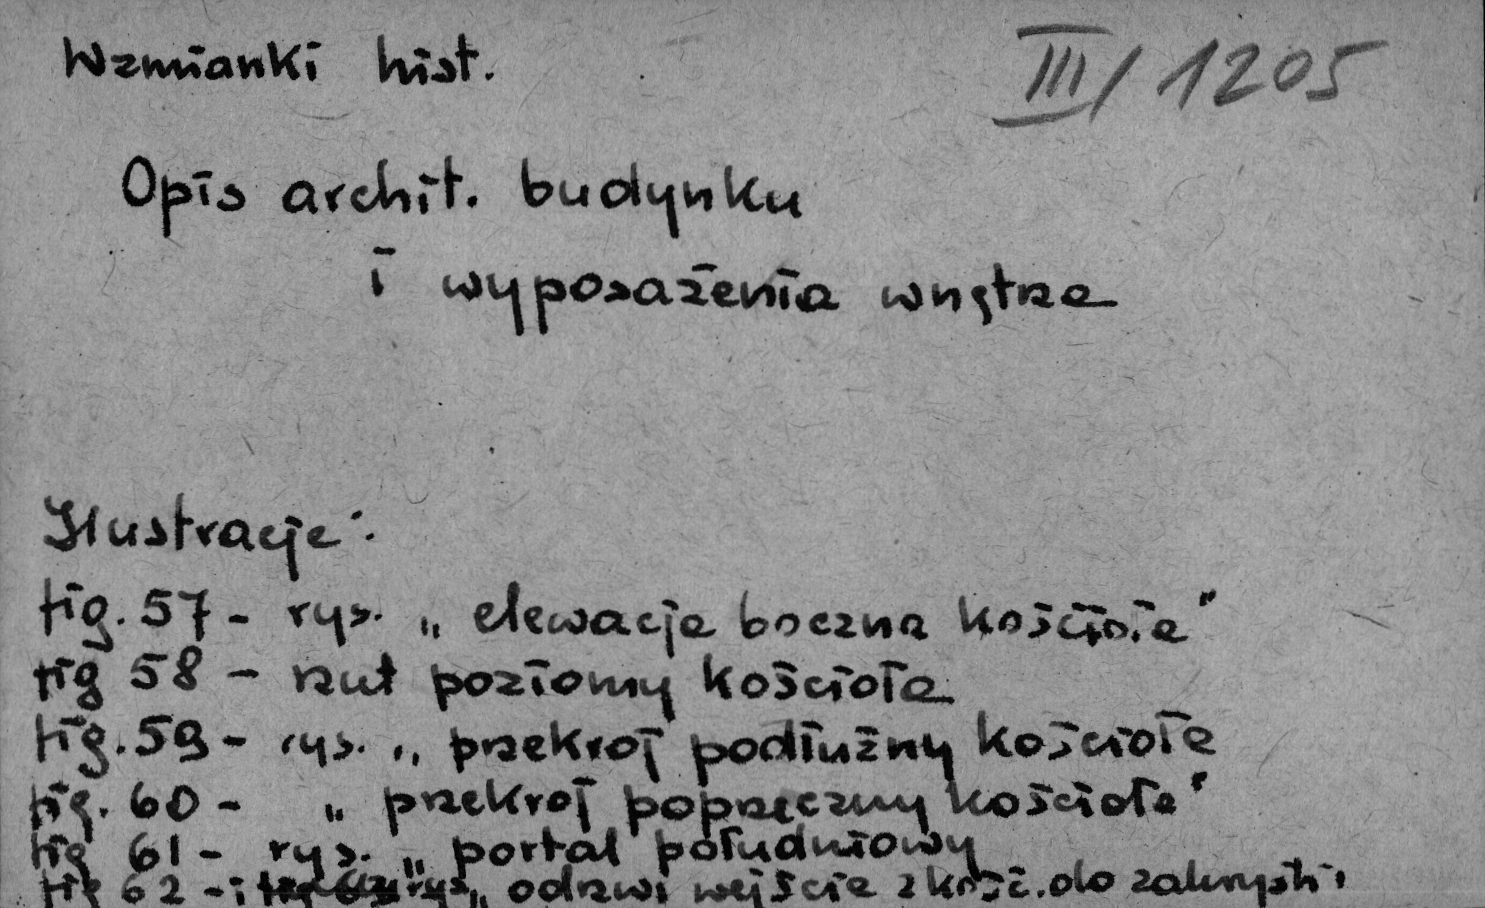 Wzmianki hist.
III/1205
Opis archit. budynku
i wyposażenia wnętrza
Ilustracje:
fig. 57 - rys. „elewacja boczna kościoła"
fig 58 - rzut poziomy kościoła
fig. 59 - rys. „przekrój podłużny kościoła
fig. 60 - „ przekrój poprzeczny kościoła"
fig 61 - rys. „portal południowy
fig 62 - i rys. „odrzwi wejście z kość. do zakrystii